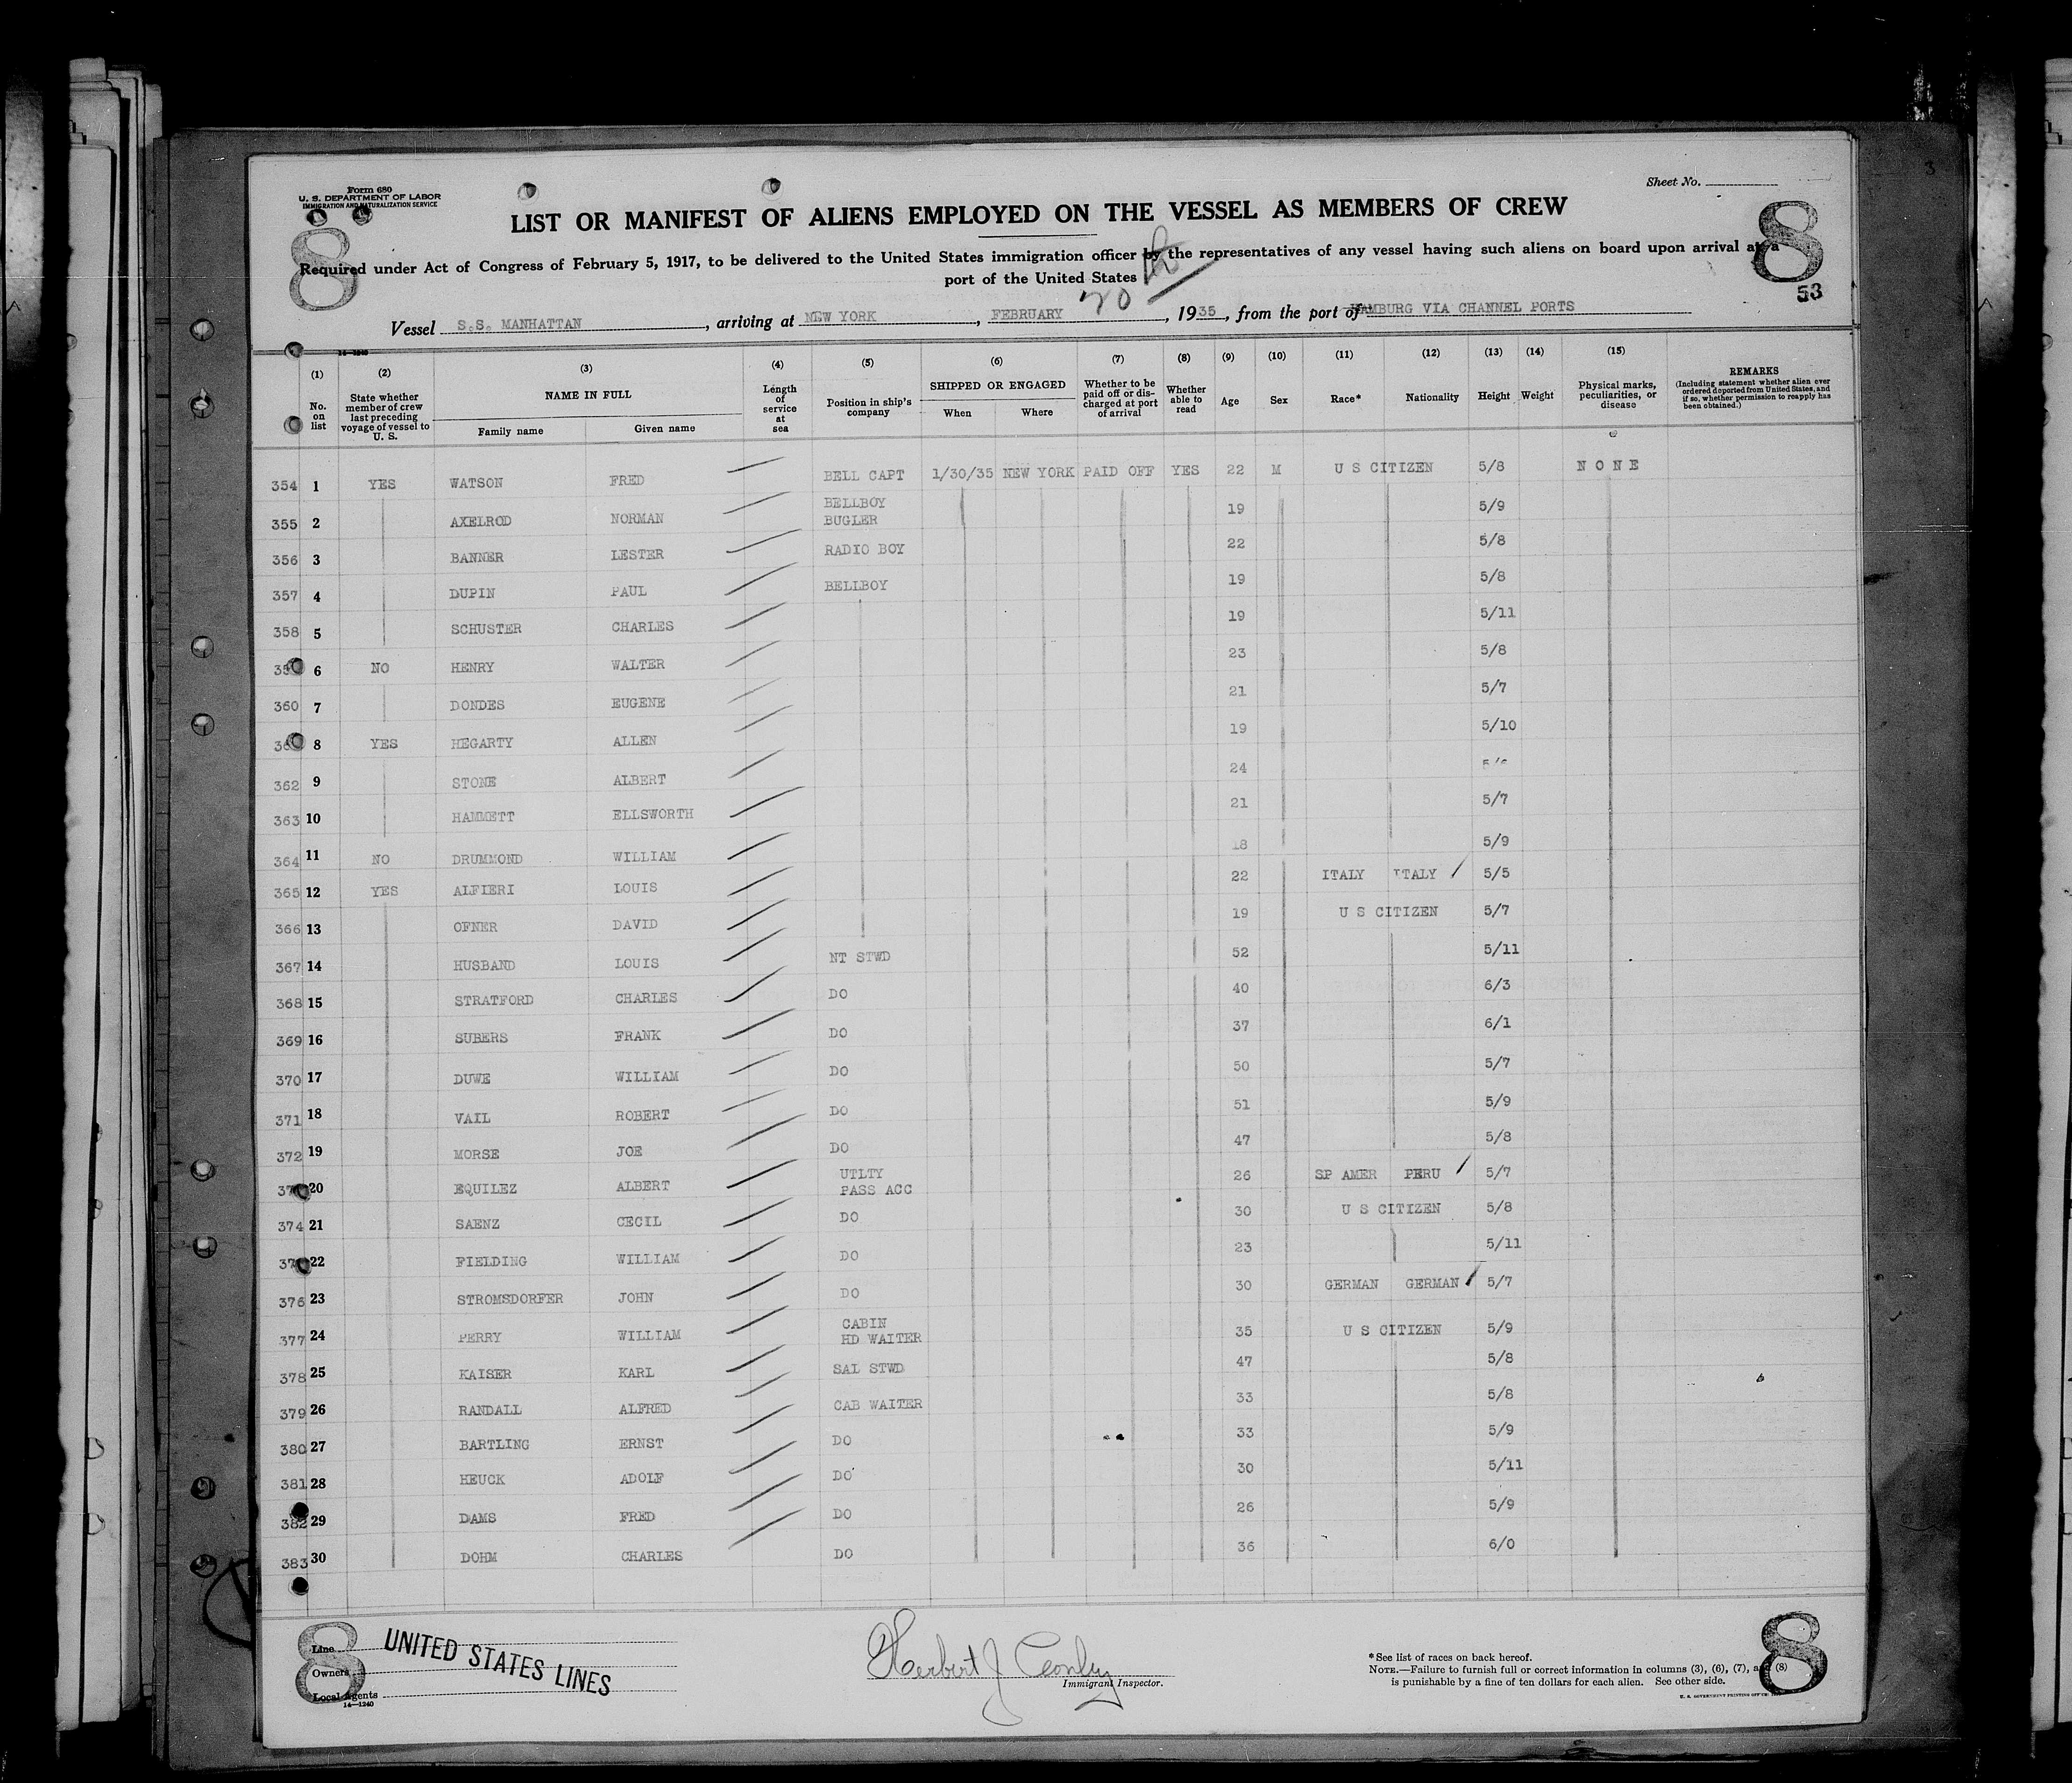 Form 680
U. S. DEPARTMENT OF LABOR
IMMIGRATION AND NATURALIZATION SERVICE
Sheet No.
LIST OR MANIFEST OF ALIENS EMPLOYED ON THE VESSEL AS MEMBERS OF CREW
8 8
Required under Act of Congress of February 5, 1917, to be delivered to the United States immigration officer by the representatives of any vessel having such aliens on board upon arrival at a
port of the United States
53
Vessel S.S. MANHATTAN, arriving at NEW YORK, FEBRUARY 20, 1935, from the port of HAMBURG VIA CHANNEL PORTS
14—1240
(1) (2) (3) (4) (5) (6) (7) (8) (9) (10) (11) (12) (13) (14) (15)
No. on list
State whether member of crew last preceding voyage of vessel to U. S.
NAME IN FULL
Family name Given name
Length of service at sea
Position in ship's company
SHIPPED OR ENGAGED
When Where
Whether to be paid off or discharged at port of arrival
Whether able to read
Age Sex Race* Nationality Height Weight
Physical marks, peculiarities, or disease
REMARKS
(Including statement whether alien ever ordered deported from United States, and if so, whether permission to reapply has been obtained.)
354 1 YES WATSON FRED BELL CAPT 1/30/35 NEW YORK PAID OFF YES 22 M U S CITIZEN 5/8 NONE
355 2 AXELROD NORMAN BELLBOY BUGLER 19 5/9
356 3 BANNER LESTER RADIO BOY 22 5/8
357 4 DUPIN PAUL BELLBOY 19 5/8
358 5 SCHUSTER CHARLES 19 5/11
6 NO HENRY WALTER 23 5/8
360 7 DONDES EUGENE 21 5/7
8 YES HEGARTY ALLEN 19 5/10
362 9 STONE ALBERT 24
363 10 HAMMETT ELLSWORTH 21 5/7
364 11 NO DRUMMOND WILLIAM 18 5/9
365 12 YES ALFIERI LOUIS 22 ITALY ITALY 5/5
366 13 OFNER DAVID 19 U S CITIZEN 5/7
367 14 HUSBAND LOUIS NT STWD 52 5/11
368 15 STRATFORD CHARLES DO 40 6/3
369 16 SUBERS FRANK DO 37 6/1
370 17 DUWE WILLIAM DO 50 5/7
371 18 VAIL ROBERT DO 51 5/9
372 19 MORSE JOE DO 47 5/8
20 EQUILEZ ALBERT UTLTY PASS ACC 26 SP AMER PERU 5/7
374 21 SAENZ CECIL DO 30 U S CITIZEN 5/8
22 FIELDING WILLIAM DO 23 5/11
376 23 STROMSDORFER JOHN DO 30 GERMAN GERMAN 5/7
377 24 PERRY WILLIAM CABIN HD WAITER 35 U S CITIZEN 5/9
378 25 KAISER KARL SAL STWD 47 5/8
379 26 RANDALL ALFRED CAB WAITER 33 5/8
380 27 BARTLING ERNST DO 33 5/9
381 28 HEUCK ADOLF DO 30 5/11
382 29 DAMS FRED DO 26 5/9
383 30 DOHM CHARLES DO 36 6/0
8 8
Line
Owners
Local Agents
14—1240
UNITED STATES LINES
Herbert J Conley
Immigrant Inspector.
*See list of races on back hereof.
NOTE.—Failure to furnish full or correct information in columns (3), (6), (7), and (8)
is punishable by a fine of ten dollars for each alien. See other side.